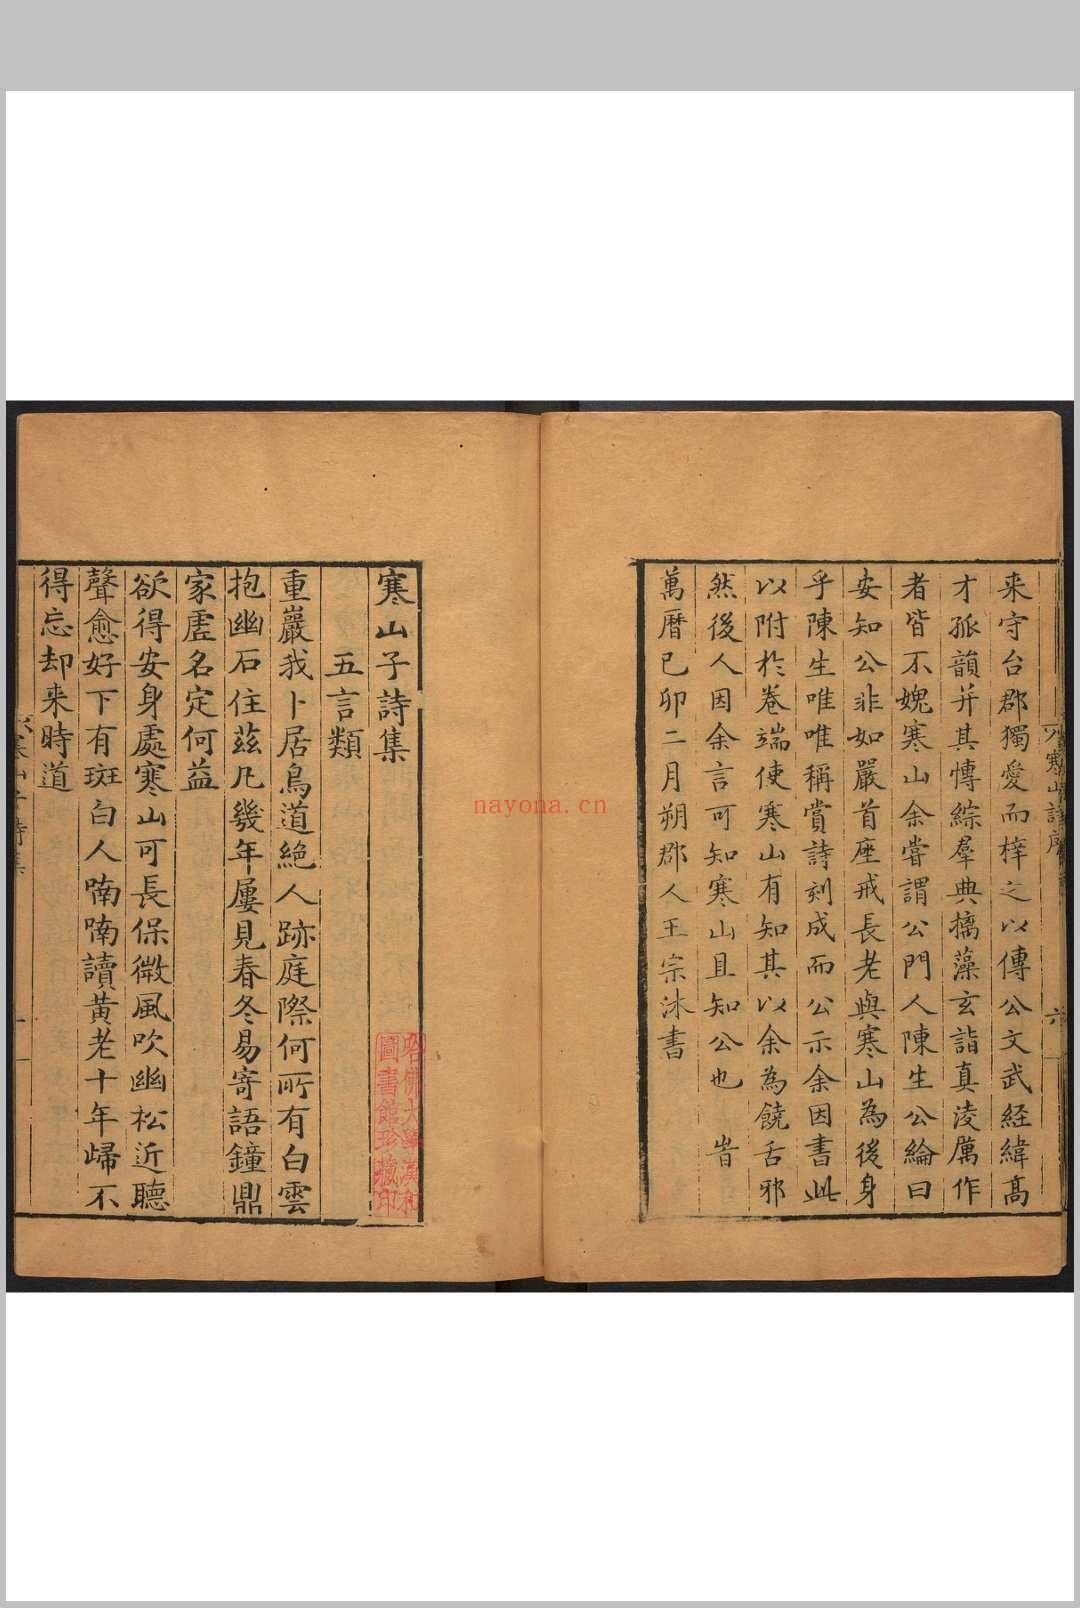 来守台郡獨愛而梓之以傳公文武經緯高
才孤韻并其慱綜羣典摛藻玄詣真淩厲作
者皆不媿寒山余嘗謂公門人陳生公綸曰
安知公非如嚴首座戒長老與寒山為後身
乎陳生唯唯稱賞詩刻成而公示余因書此
以附於卷端使寒山有知其以余為饒舌邪
然後人因余言可知寒山且知公也　旹
萬曆己卯二月朔郡人王宗沐書
寒山詩序
六
寒山子詩集
五言類
重巖我卜居鳥道絶人跡庭際何所有白雲
抱幽石住茲凡幾年屢見春冬易寄語鐘鼎
家虛名定何益
欲得安身處寒山可長保微風吹幽松近聽
聲愈好下有斑白人喃喃讀黄老十年歸不
得忘却来時道
寒山子詩集
一
哈佛大學漢和
圖書館珍藏印
nayona.cn